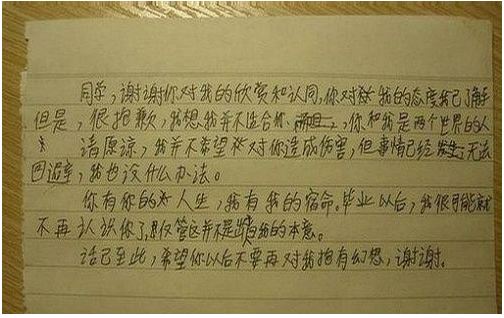 同学，谢谢你对我的欣赏和认同，你对我的态度我已了解
但是，很抱歉，我想我并不适合你，你和我是两个世界的人
请原谅，我并不希望对你造成伤害，但事情已经无法
回避，我也没什么办法。
你有你的人生，我有我的宿命。毕业以后，我很可能就
不再认识你了，尽管这并不是我的本意。
话已至此，希望你以后不要再对我抱有幻想，谢谢。